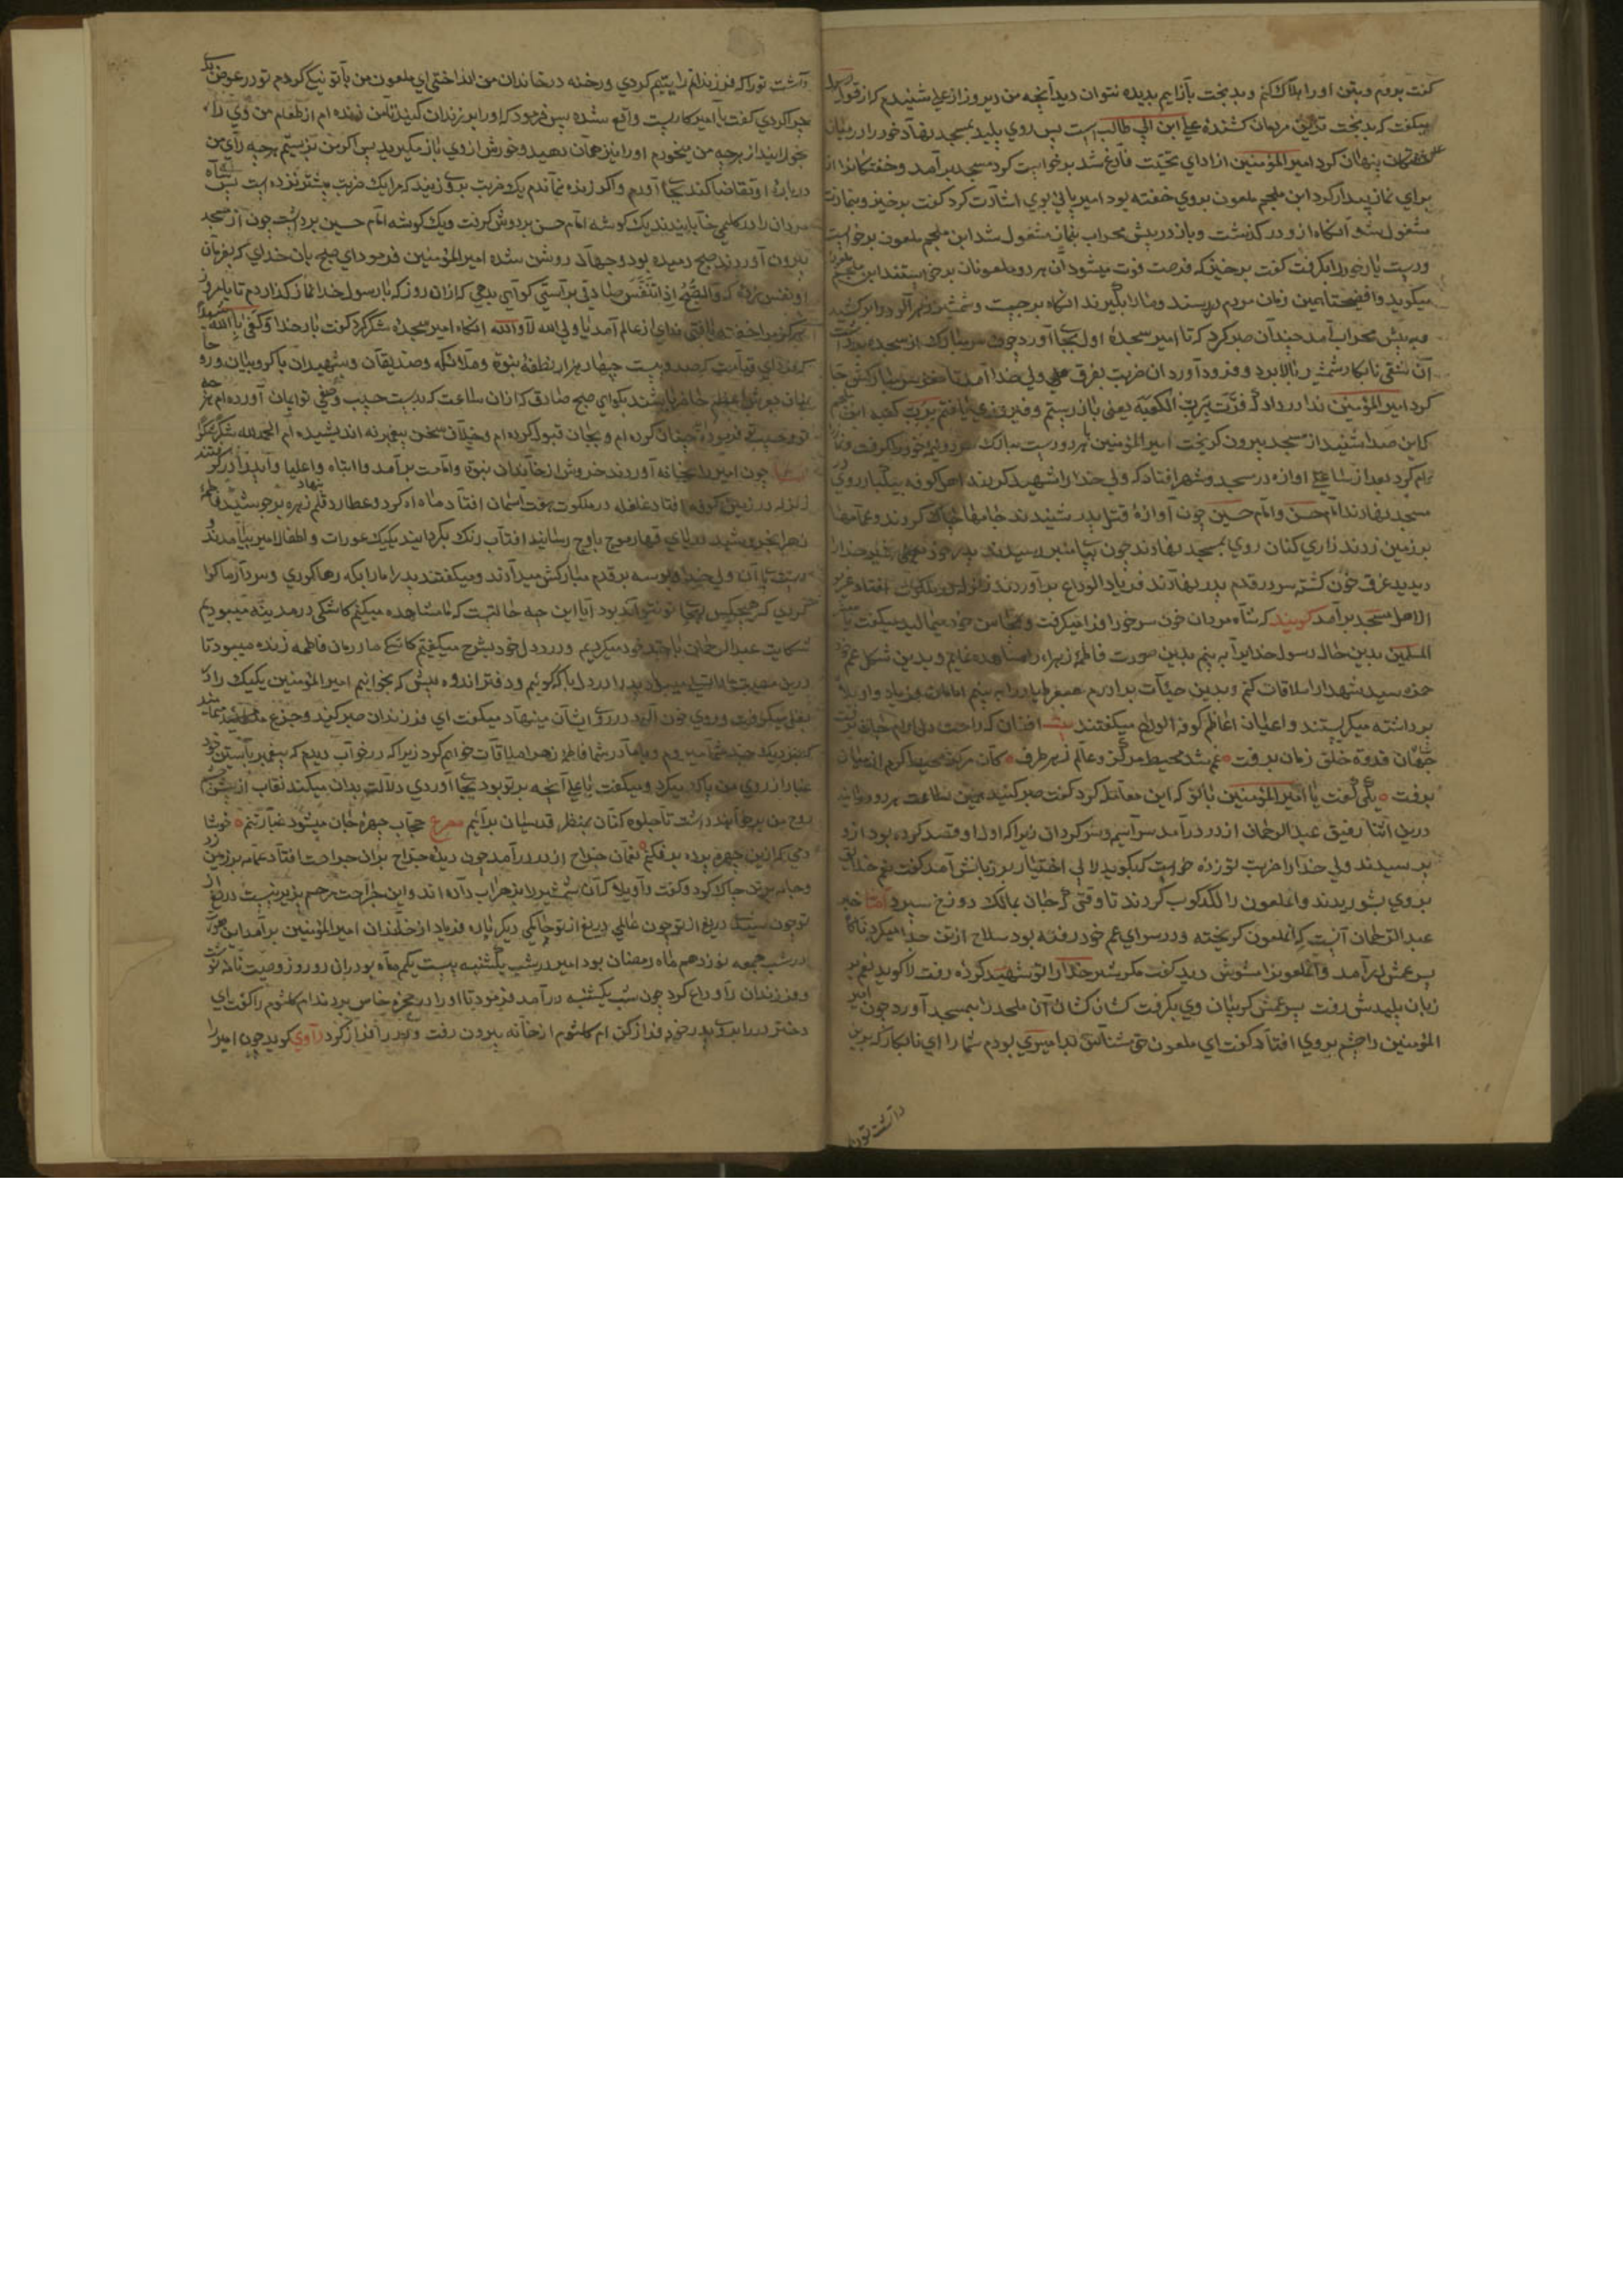 کفت بروم وبتن اورا هلاک کنم وبدبخت بازایم بدیده نتوان دید آنچه من دیروز از علی شنیدم که از قول رسول
میکفت که بدبخت ترین مردمان کشنده علی ابن ابی طالب است پس روی پلید بمسجد نهاد خود را در میان
خفتکان پنهان کرد امیرالمؤمنین از ادای تحیّت فارغ شد برخواست کرد مسجد برآمد وخفتکانرا از
برای نماز بیدار کرد ابن ملجم ملعون بروی خفته بود امیر پائی بوی اشارت کرد کفت برخیز وبنماز
مشغول شو آنکاه ازو در کذشت وباز در پیش محراب بنماز مشغول شد ابن ملجم ملعون برخواست
ودست یار خود را بکرفت کفت برخیز که فرصت فوت میشود آن هر دو ملعونان برخواستند ابن ملجم
میکوید همین زمان مردم رسند ومارا بکیرند انکاه برجست وشمشیر زهر آلود را برکشید
وبه پیش محراب آمد چندان صبر کرد که تا امیر سجدۀ اول بجا آورد چون سر مبارک از سجده برداشت
آن شقی نابکار شمشیر بالا برد وفرود آورد آن ضربت بفرق علی ولی خدا آمد تا
کرد امیرالمؤمنین ندا در داد که فزت برب الکعبه یعنی باز رستم وفیروزی یافتم برب کعبه ابن ملجم
که این صدا شنید از مسجد بیرون کریخت امیرالمؤمنین هر دو دست مبارک
بعد از ساعتی اوازه در مسجد وشهر افتاد که ولی خدا را شهید کردند اهل کوفه بیکبار روی
مسجد نهادند امام حسن وامام حسین چون آوازۀ قتل پدر شنیدند جامها چاک کردند وعمامها
بر زمین زدند زاری کنان روی بمسجد نهادند چون
دیدید غرق خون کشته سر در قدم پدر نهادند فریاد الوداع برآوردند
الاهل مسجد برآمد کویند که شاه مردان خون سر خود
المسلمین بدین حال رسول خدایرا به بینم بدین صورت فاطمۀ زهراء را مشاهده نمایم وبدین شکل عم خود
حمزه سید شهدا را ملاقات کنم وبدین حیئات برادرم جعفر طیار را به بینم امامان فریاد واویلا
برداشته میکریستند واعیان اغاظم کوفه الوداع میکفتند بیت افغان که راحت دل
جهان قدوة خلق زمان برفت
برفت یکی کفت یا امیرالمؤمنین با تو که این معامله کرد کفت صبر کنید همین ساعت
درین اثنا رفیق عبدالرحمان از در درآمد سراسیمه وسر کردان زیرا که اورا وقصد کرده بود ازو
پرسیدند ولی خدا را ضربت تو زده خواست که بکوید لا بی اختیار بر زبانش آمد کفت نعم خلایق
بروی بشوریدند واملعون را لکدکوب کردند تا وقتی که جان بمالک دوزخ سپرد اما خبر
عبدالرحمان آنست که املعون کریخته ودر سرای عم خود رفته بود سلاح از تن جدا میکرد ناکاه
پسر عمش درآمد واملعونرا مشوش دید کفت مکر شیر خدا را تو شهید کردۀ رفت لا کوید نعم بر
زبان پلیدش رفت پسر عمش کریبان وی بکرفت کشان کشان آن ملحد را بمسجد آورد چون امیر
المؤمنین را چشم بروی افتاد کفت ای ملعون بد امیری بودم شما را ای نابکار که برین
داشت تورا
داشت تورا که فرزندانم را یتیم کردی ورخنه در خاندان من انداختی ای ملعون من با تو نیکی کردم تو در عوض بدی
چرا کردی کفت یا امیر کاریست واقع شده پس فرمود که اورا بزندان کنید تا من زنده ام از طعام من وی را
بخورانید از هرچه من میخورم اورا نیز همان دهید وخورش از وی باز مکیرید پس اکر من بزیستم هرچه رای من
درباره او تقاضا کند بجا آورم واکر زنده نماندم یک ضربت بروی زنید که مرا یک ضربت بیشتر نزده است پس
مردان را در کلیمی خابانیدند یک کوشه امام حسن بر دوش کرفت ویک کوشه امام حسین برداشت چون از مسجد
بیرون آوردند صبح دمیده بود وجهان روشن شده امیرالمؤمنین فرمود ای صبح بان خدای که بفرمان
او نفس میزنی که والصبح اذا تنفس صادقی براستی کواهی بدهی که ازان روز که با رسول خدا نماز کذاردم تا بامروز
هرکز مرا خفته یافتی ندای از عالم آمد یا ولی الله لا والله انکاه امیر سجدۀ شکر کرد کفت بار خدا وکفی بالله شهیدا
که فردای قیامت که صد وبیست چهار هزار نطفه نبوة وملائکه وصدیقان وشهیدان باکروبیان
عرش اعظم حاضر باشند بکوای صبح صادق که ازان ساعت که بدست حبیب وصفی تو ایمان آورده ام هرچه
تو وحبیب تو فرموده چنان کرده ام وبجان قبول کرده ام وخلاف سخن پیغمبر نه اندیشیده ام الحمدلله شکرا
چون امیر را بخانه آوردند خروش از خاندان نبوة وامامت برآمد وا ابتاه واعلیا
زلزله در زمین کوفه افتاد غلغله در ملکوت هفت آسمان افتاد ماه آه کرد وعطارد قلم نهاد زهره بر جوشید فاطمه
زهرا بخروشید دریای قهار موج باوج رسانید افتاب رنک بکردانید یکیک عورات واطفال امیر میامدند
وبوسه بر قدم مبارکش میدادند ومیکفتند پدرا مارا بکه رها کردی وسر آزما کوا
که هیچکس بجا تو نتواند بود آیا این چه حالتست که ما مشاهده میکنیم کاشکی در مدینه میبودیم
شکایت عبدالرحمان با جد خود میکردیم ودرد دل خود بشرح میکفتیم کاشکی مادرمان فاطمه زنده میبود تا
درین مصیبت پدر را درد دل باکه کوئیم ودفتر اندوه پیش که بخوانیم امیرالمؤمنین یکیک را در
بغل میکرفت وروی خون آلود در روی ایشان مینهاد میکفت ای فرزندان صبر کنید وجزع منمائید
که نزدیک جد شما میروم وبا مادر شما فاطمۀ زهرا ملاقات خواهم کرد زیرا که در خواب دیدم که پیغمبر بآستین خود
غبار از روی من پاک میکرد ومیکفت یا علی آنچه بر تو بود بجا آوردی دلالت بدان میکند نقاب از پیش
روح من برخواهند داشت تا جلوه کنان بمنظر قدسیان برآیم مصرع حجاب چهرۀ جان میشود غبار تنم خوشا
دمی که ازین چهره پرده برفکنم نعمان جراح از در درآمد چون دیدۀ جراح بران جراحت افتاد عمامه بر زمین زد
وجامه بر تن چاک کرد وکفت واویلا که آن شمشیر را بزهراب داده اند واین جراحت مرهم پذیر نیست دریغ از
تو چون سیدی دریغ از تو چون عالمی دریغ از تو چاکی دیکر باره فریاد از فرزندان امیرالمؤمنین برآمد این صورت
در شب جمعه نوزدهم ماه رمضان بود امیر در شب یکشنبه بیست یکم ماه بود ران دو روز وصیت نامه نوشت
وفرزندان را وداع کرد چون شب یکشنبه درآمد فرمود تا اورا در حجرۀ خاص بردند ام کلثوم را کفت ای
دختر در را بروی پدر خود فراز کن ام کلثوم از خانه بیرون رفت ودر را فراز کرد راوی کوید چون امیر را